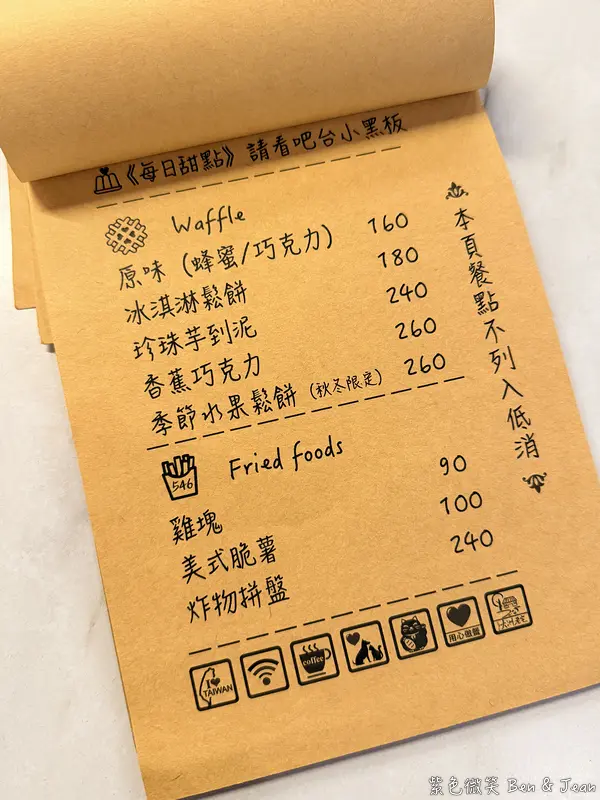 《每日甜點》 請看吧台小黑板
Waffle
原味 (蜂蜜/巧克力) 160
冰淇淋鬆餅 180
珍珠芋到泥 240
香蕉巧克力 260
季節水果鬆餅 (秋冬限定) 260
本頁餐點不列入低消
546
Fried foods
雞塊 90
美式脆薯 100
炸物拼盤 240
I
TAIWAN
coffee
用心做餐
紫色微笑 Ben & Jean